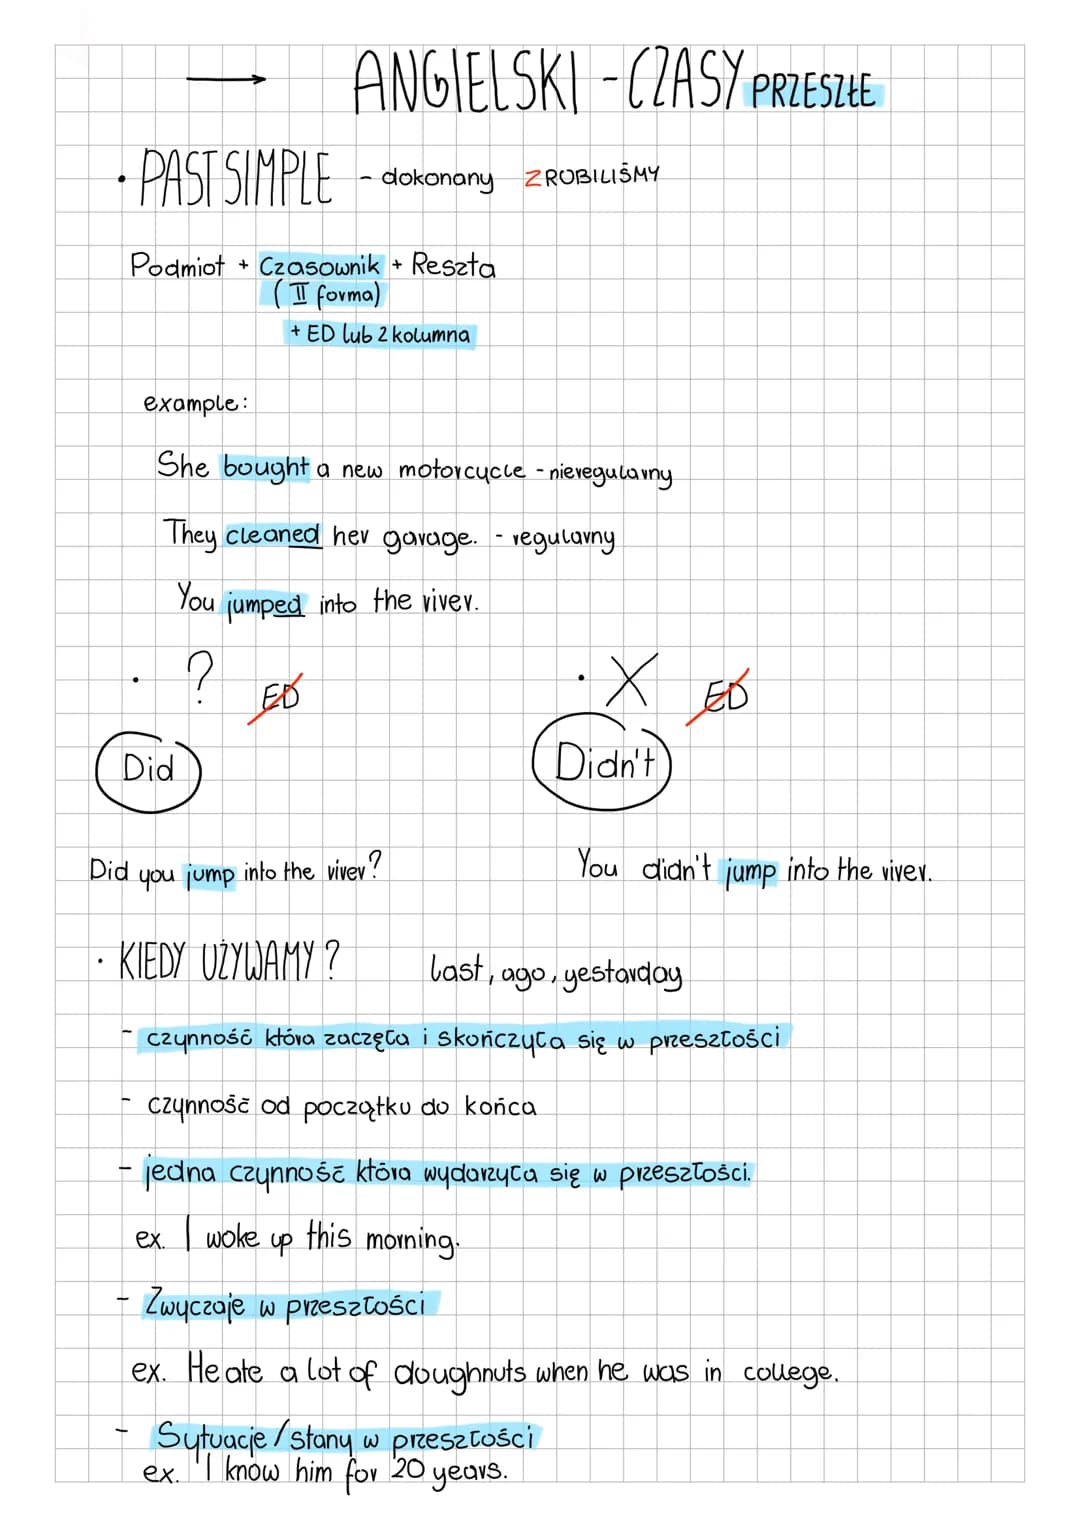 → ANGIELSKI - CZASY PRZESZŁE
• PAST SIMPLE - dokonany ZROBILIŚMY
Podmiot + Czasownik + Reszta
(II forma)
+ ED lub 2 kolumna
example:
She bought a new motorcycle - nieregularny
They cleaned her garage. - regularny
You jumped into the river.
• ? ED • X ED
Did Didn't
Did you jump into the river? You didn't jump into the river.
• KIEDY UŻYWAMY? last, ago, yestarday
- czynność która zaczęła i skończyła się w przeszłości
- czynność od początku do końca
- jedna czynność która wydarzyła się w przeszłości.
ex. I woke up this morning.
- Zwyczaje w przeszłości
ex. He ate a lot of doughnuts when he was in college.
- Sytuacje/stany w przeszłości
ex. "I know him for 20 years.